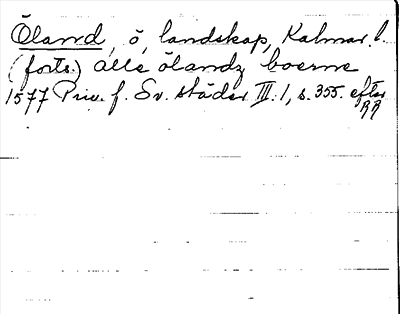 Öland, ö, landskap, Kalmar l.
(forts.) alle ölandz boerne
1577 Priv. f. Sv. städer III. 1, s. 355. efter
RR